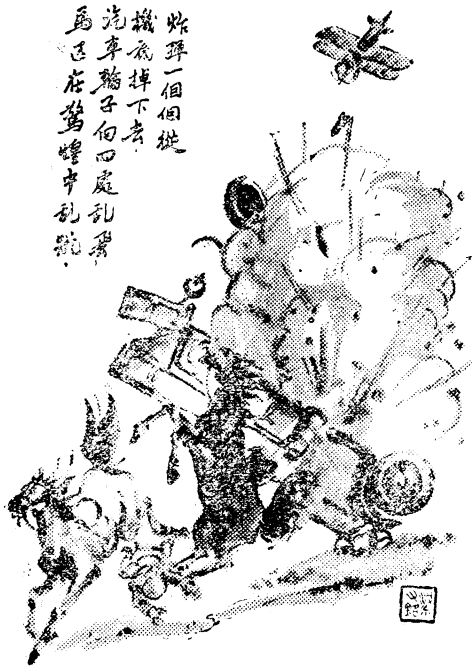 炸弹一個個從
機底掉下去，
汽車輪子向四處乱飛，
馬匹在驚惶中乱跑，